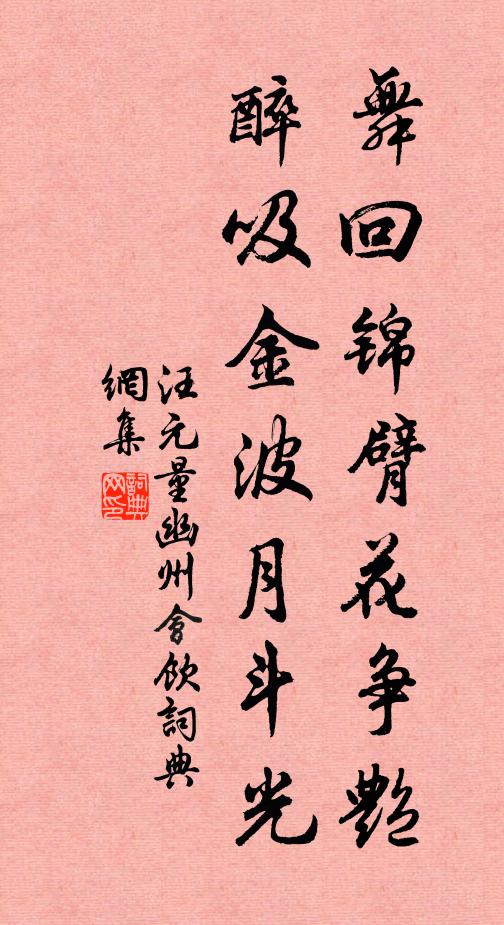 舞回锦臂花争艳
醉吸金波月斗光
汪元量幽州會飲詞典
網集
詞典
网印